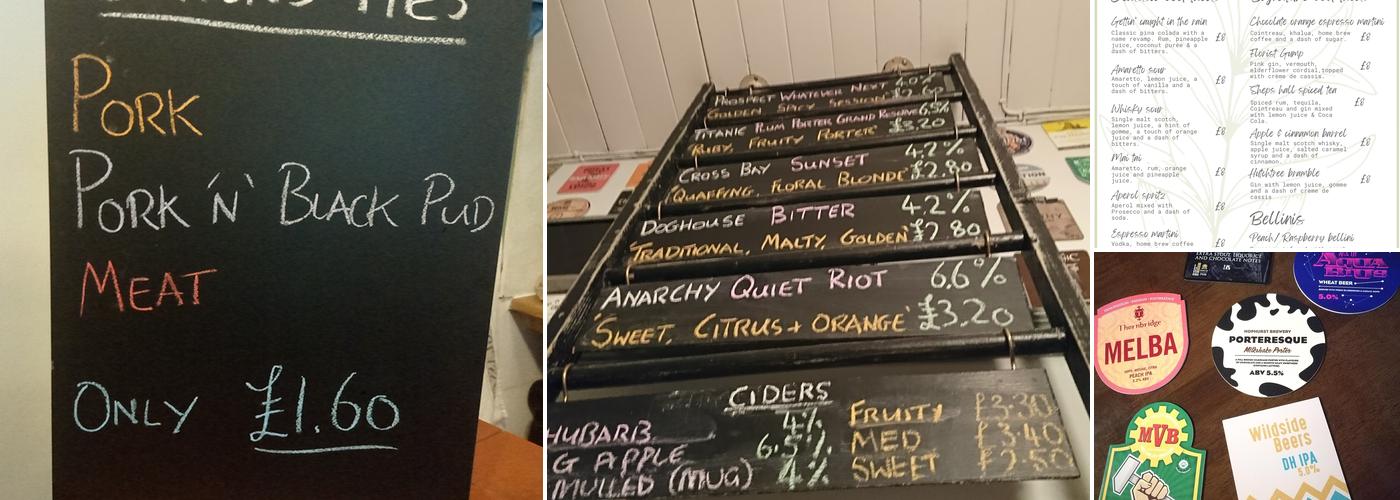 PIES
PORK
PORK 'N' BLACK PUD
MEAT
ONLY £1.60
PROSPECT WHATEVER NEXT
GOLDEN SPICY SESSION
TITANIC PLUM PORTER GRAND RESERVE 6.5%
'RUBY, FRUITY PORTER' £3.20
CROSS BAY SUNSET 4.2%
'QUAFFING, FLORAL BLONDE' £2.80
DOGHOUSE BITTER 4.2%
'TRADITIONAL, MALTY, GOLDEN' £2.80
ANARCHY QUIET RIOT 6.6%
'SWEET, CITRUS + ORANGE' £3.20
CIDERS
HUBARB 4% FRUITY £3.30
G APPLE 6.5% MED £3.40
MULLED (MUG) 4% SWEET £2.50
Gettin' caught in the rain
Classic pina colada with a
name revamp. Rum, pineapple
juice, coconut purée & a
dash of bitters.
£8
Amaretto sour
Amaretto, lemon juice, a
touch of vanilla and a
dash of bitters.
£8
Whisky sour
Single malt scotch,
lemon juice, a hint of
gomme, a touch of orange
juice and a dash of
bitters.
£8
Mai tai
Amaretto, rum, orange
juice and pineapple
juice.
£8
Aperol spritz
Aperol mixed with
Prosecco and a dash of
soda.
£8
Espresso martini
Vodka, home brew coffee
£8
Chocolate orange espresso martini
Cointreau, khalua, home brew
coffee and a dash of sugar.
£8
Florist Gump
Pink gin, vermouth,
elderflower cordial, topped
with crème de cassis.
£8
Sheps hall spiced tea
Spiced rum, tequila,
Cointreau and gin mixed
with lemon juice & Coca
Cola.
£8
Apple & cinnamon barrel
Single malt scotch whisky,
apple juice, salted caramel
syrup and a dash of
cinnamon.
£8
Hitchtree bramble
Gin with lemon juice, gomme
and a dash of crème de
cassis
£8
Bellinis
Peach/ Raspberry bellini
EXTRA STOUT, LIQUORICE
AND CHOCOLATE NOTES
AQUA
WHEAT BEER
5.0%
Thornbridge
MELBA
PEACH IPA
HOPHURST BREWERY
PORTERESQUE
Milkshake Porter
ABV 5.5%
MVB
Wildside
Beers
DH IPA
5.0%